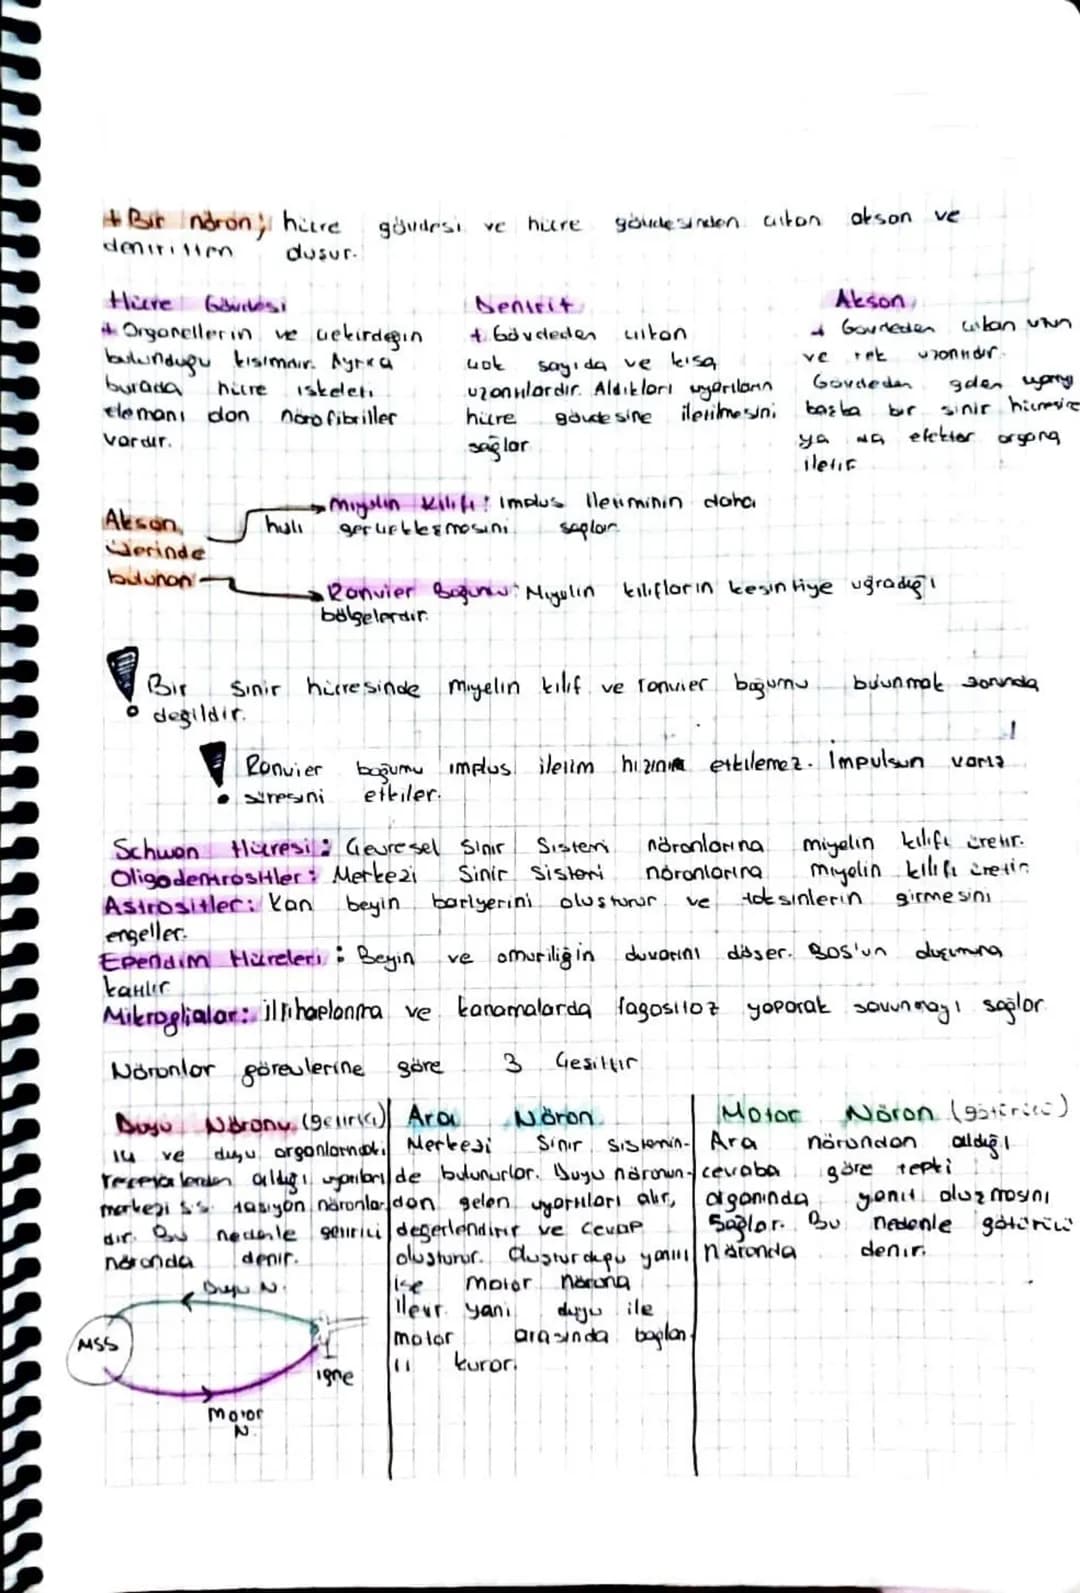 + Bir nöron; hücre gövdesi ve hücre gövdesinden çıkan akson ve
dentritten oluşur.
Hücre Gövdesi
+ Organellerin ve çekirdeğin
bulunduğu kısımdır. Ayrıca
burada hücre iskeleti
elemanı olan nörofibriller
vardır.
Dentrit
+ Gövdeden çıkan
çok sayıda ve kısa
uzantılardır. Aldıkları uyarıların
hücre gövdesine iletilmesini
sağlar
Akson
+ Gövdeden çıkan uzun
ve tek uzantıdır.
Gövdeden gelen uyarıyı
başka bir sinir hücresine
ya da efektör organa
iletir
Akson
üzerinde
bulunan
Miyelin Kılıfı: İmplus İletiminin daha
hızlı gerçekleşmesini sağlar
Ranvier Boğumu: Miyelin kılıfların kesintiye uğradığı
bölgelerdir.
! Bir sinir hücresinde miyelin kılıf ve ranvier boğumu bulunmak zorunda
değildir.
! Ranvier boğumu implus iletim hızını etkilemez. İmpulsun varış
süresini etkiler.
Schwan Hücresi: Çevresel Sinir Sistemi nöronlarına miyelin kılıfı üretir.
Oligodentrositler: Merkezi Sinir Sistemi nöronlarına miyelin kılıfı üretir.
Astrositler: Kan beyin bariyerini oluşturur ve toksinlerin girmesini
engeller.
Ependim Hücreleri: Beyin ve omuriliğin duvarını döşer. BOS'un oluşumuna
katılır
Mikroglialar: İltihaplanma ve kanamalarda fagositoz yaparak savunmayı sağlar
Nöronlar görevlerine göre 3 Çeşittir
Duyu Nöronu (getirici)
İç ve duyu organlarındaki
reseptörlerden aldığı uyarıları
merkezi s.s. taşıyan nöronlar
dır. Bu nedenle getirici
nöronda denir.
Duyu N.
MSS
iğne
Motor
N.
Ara Nöron
Merkezi Sinir Sisteminin-
de bulunurlar. Duyu nöronun-
dan gelen uyarıları alır,
değerlendirir ve cevap
oluşturur. Oluşturduğu yanıtı
ise motor nörona
iletir yani duyu ile
motor arasında bağlan-
tı kurar.
Motor Nöron (götürücü)
Ara nörondan aldığı
cevaba göre tepki
organında yanıt oluşmasını
Sağlar. Bu nedenle götürücü
nöronda denir.